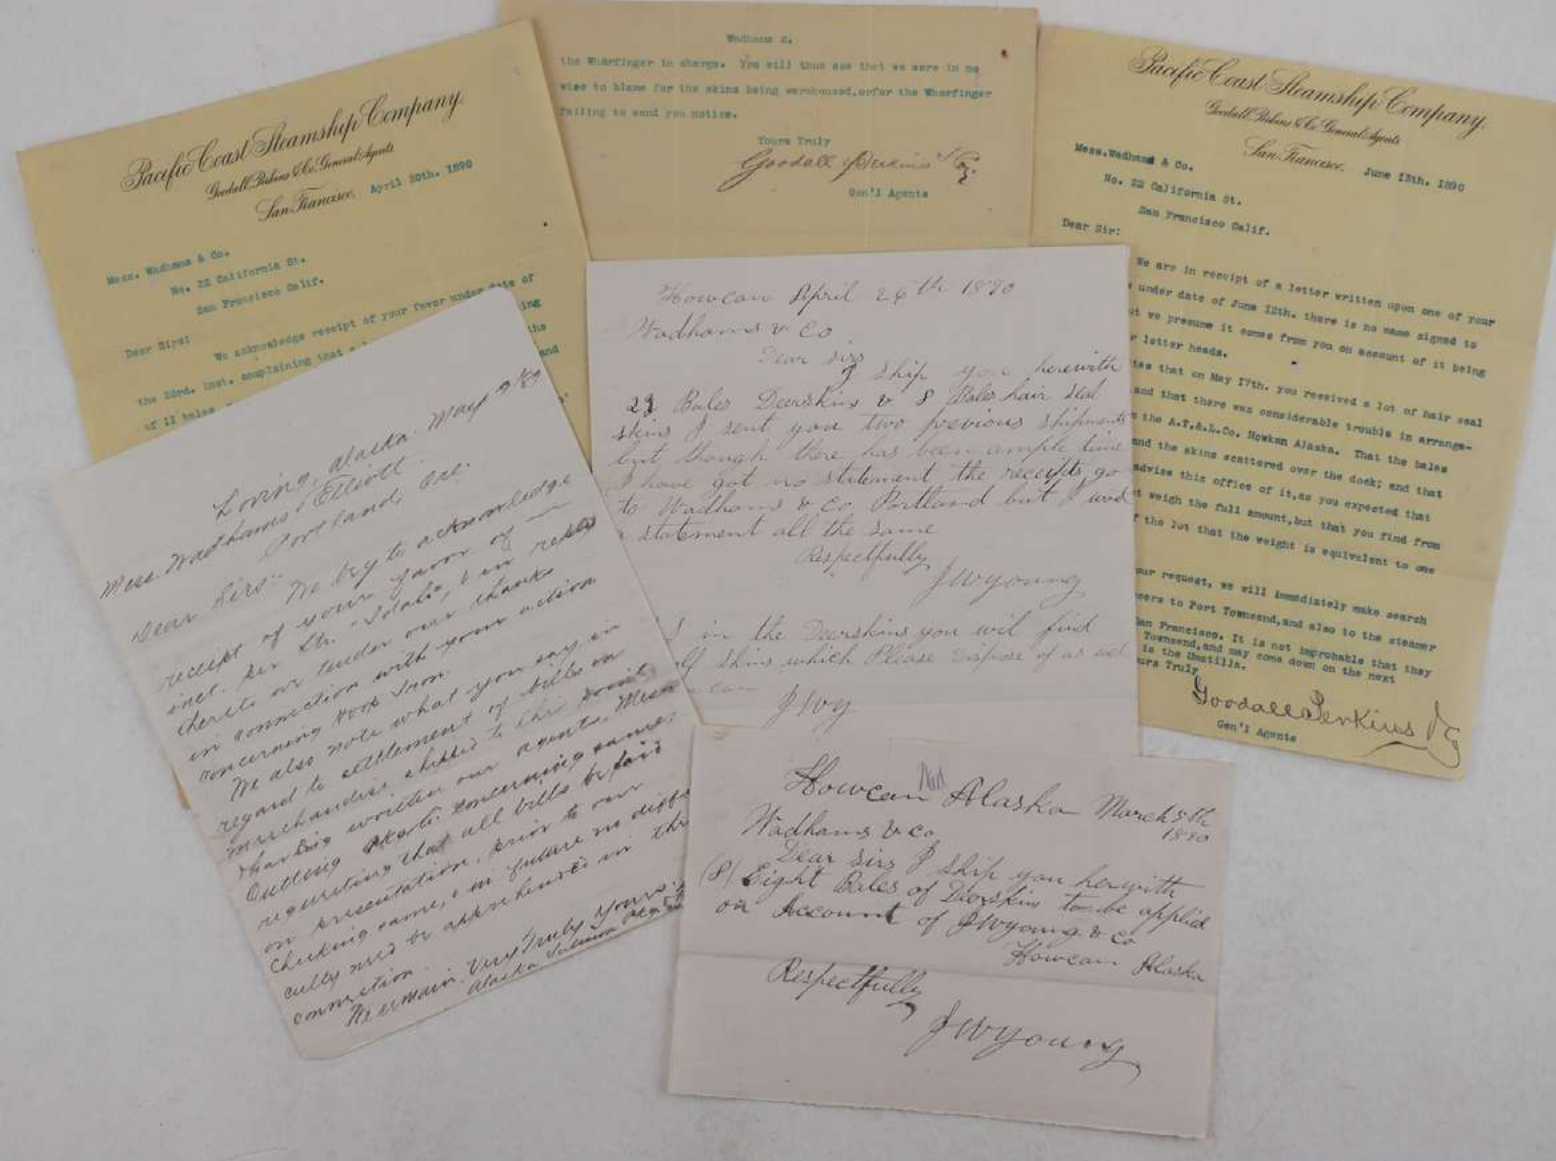 Pacific Coast Steamship Company.
Goodall, Perkins & Co. General Agents
San Francisco, April 30th. 1890
Mess. Wadhams & Co.
No. 22 California St.
San Francisco Calif.
Dear Sirs:
We acknowledge receipt of your favor under date of
the 23rd. inst. complaining that a
the
of 11 bales
and
Wadhams 2.
the Wharfinger in charge. You will thus see that we were in no
wise to blame for the skins being warehoused,orfor the Wharfinger
failing to send you notice.
Yours Truly
Goodall Perkins & Co.
Gen'l Agents
Pacific Coast Steamship Company.
Goodall, Perkins & Co. General Agents
San Francisco, June 13th. 1890
Mess.Wadhams & Co.
No. 22 California St.
San Francisco Calif.
Dear Sir:
We are in receipt of a letter written upon one of your
under date of June 12th. there is no name signed to
we presume it comes from you on account of it being
letter heads.
that on May 17th. you received a lot of hair seal
and that there was considerable trouble in arrange-
the A.T.&.L.Co. Howkan Alaska. That the bales
and the skins scattered over the dock; and that
advise this office of it,as you expected that
weigh the full amount,but that you find from
the lot that the weight is equivalent to one
request, we will immediately make search
to Port Townsend,and also to the steamer
San Francisco. It is not improbable that they
Townsend,and may come down on the next
is the Umatilla.
Yours Truly
Goodall Perkins & Co
Gen'l Agents
Loring, Alaska. May 9/89
Mess. Wadhams & Elliott
Portland Ore.
Dear Sirs:- We beg to acknowledge
receipt of your favor of
inst. per Str. "Idaho, & in reply
thereto we tender our thanks
in connection with your action
concerning Hoop Iron.
We also note what you say in
regard to settlement of bills on
merchandise shipped to this point,
having written our agents, Mess
Cutting concerning same,
requesting that all bills be paid
on presentation, prior to our
checking same, & in future no diffi-
culty need be apprehended in this
connection.
We remain. Very Truly Yours.
Alaska Salmon
Howcan April 26th 1890
Wadhams & Co
Dear Sirs
I ship you herewith
Bales Deerskins & 8 Bales hair seal
skins I sent you two previous shipments
but though there has been ample time
I have got no statement the receipts go
to Wadhams & Co Portland but I want
a statement all the same
Respectfully
J W Young
in the Deerskins you wil find
skins which Please Dispose of as well
can
J W Y
Howcan Alaska March 8th
1890
Wadhams & Co
Dear Sirs I ship you herwith
(8) Eight Bales of Deerskins to be applied
on Account of J W Young & Co
Howcan Alaska
Respectfully
J W Young